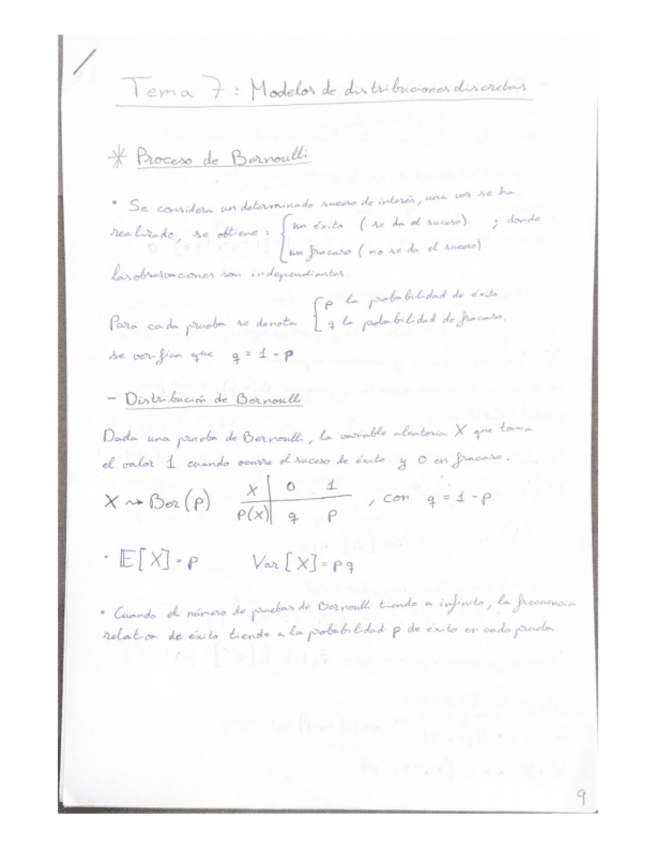 Tema 7: Modelos de distribuciones discretas
* Proceso de Bernoulli
• Se considera un determinado suceso de interés, una vez se ha
realizado, se obtiene: { un éxito ( se da el suceso) ; donde
un fracaso ( no se da el suceso)
las observaciones son independientes.
Para cada prueba se denota { p la probabilidad de éxito
q la probabilidad de fracaso.
se verifica que q = 1 - p
- Distribución de Bernoulli
Dada una prueba de Bernoulli, la variable aleatoria X que toma
el valor 1 cuando ocurre el suceso de éxito y 0 en fracaso.
X ⇝ Ber(p) X | 0 1 , con q = 1 - p
P(X) | q p
• 𝔼[X] = p Var[X] = pq
• Cuando el número de pruebas de Bernoulli tiende a infinito, la frecuencia
relativa de éxito tiende a la probabilidad p de éxito en cada prueba
9